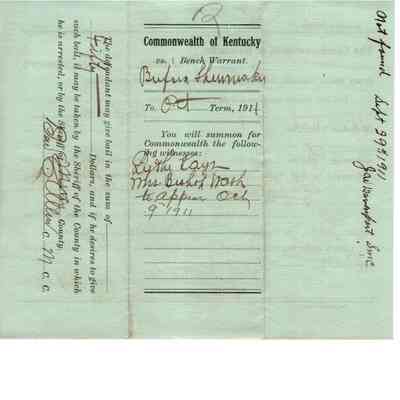 The defendant may give bail in the sum of
Fifty
Dollars, and if he desires to give
such bail, it may be taken by the Sheriff of the County in which
he is arrested, or by the
County.
c. M. c. c.
Commonwealth of Kentucky
vs. Bench Warrant.
Buford Shewmaker
To Oct Term, 1911
You will summon for
Commonwealth the follow-
ing witnesses:
Mrs Bishop Nash
to appear Oct
9 1911
Not found Sept 29 1911